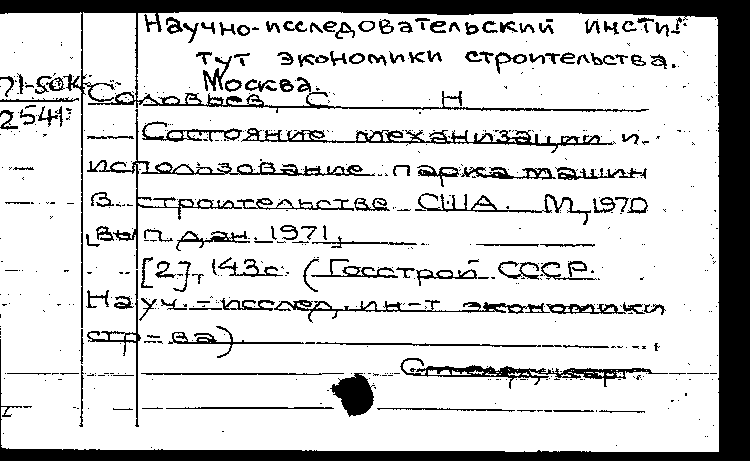 Научно-исследовательский инсти-
тут экономики строительства.
Москва.
71-50к
Соловьев С Н
2541:
Состояние механизации и
использование парка машин
в строительстве США. М, 1970
[вып. дан. 1971,
[2], 143с. (Госстрой СССР.
Науч.-исслед. ин-т экономики
стр-ва)